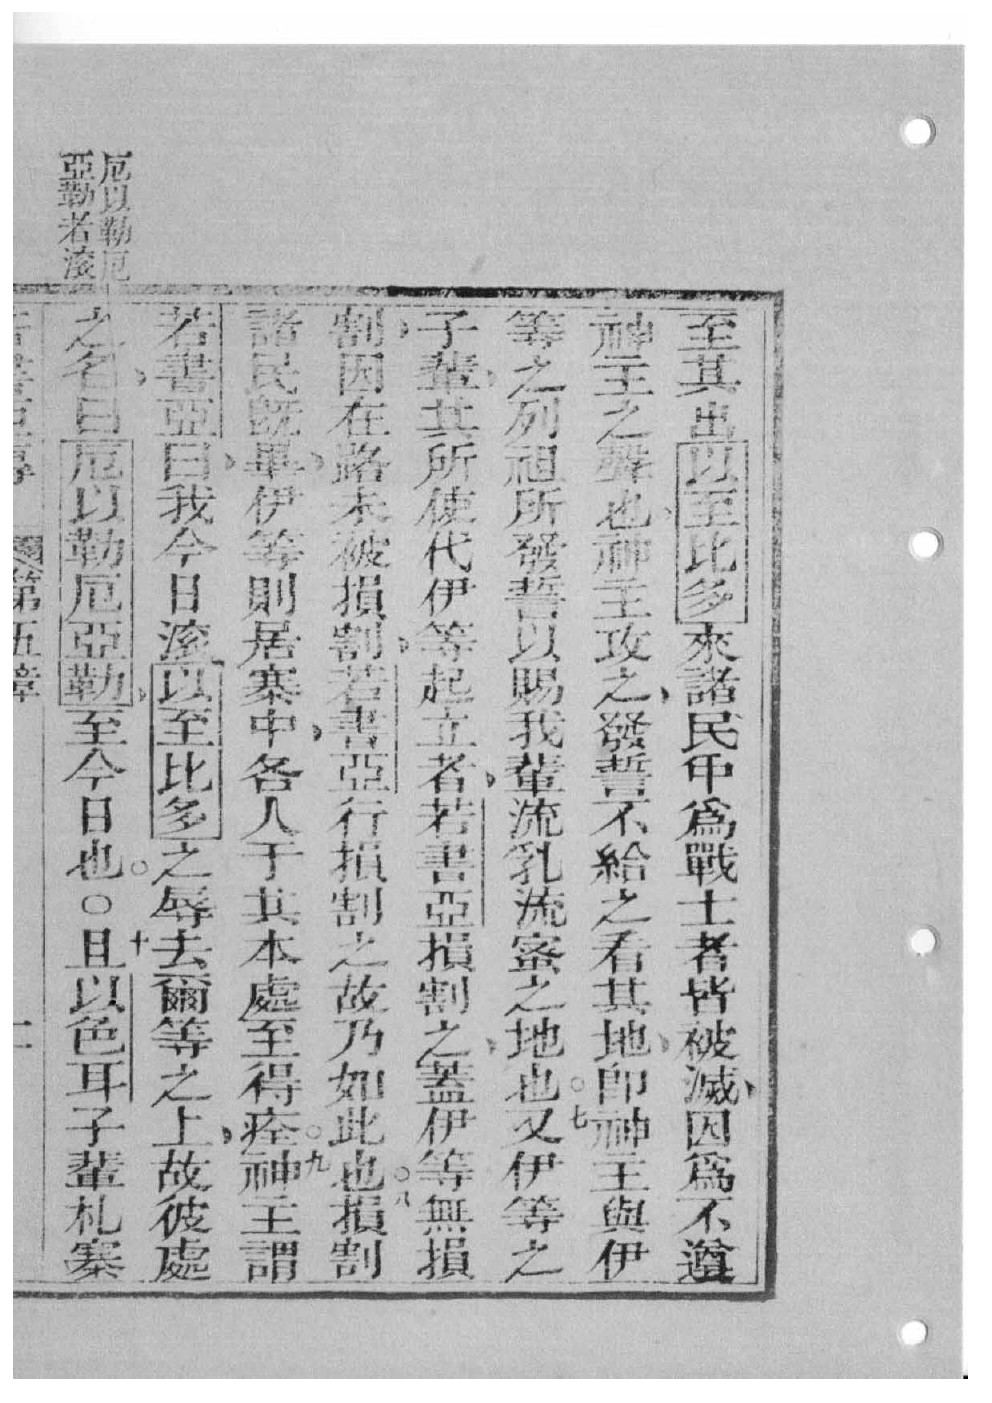 至其出以至比多來諸民中爲戰士者皆被滅因爲不遵
神主之聲也神主攻之發誓不給之看其地卽神主與伊
等之列祖所發誓以賜我輩流乳流蜜之地也○七又伊等之
子輩其所使代伊等起立者若書亞損割之蓋伊等無損
割因在路未被損割若書亞行損割之故乃如此也○八損割
諸民既畢伊等則居寨中各人于其本處至得痊○九神主謂
若書亞曰我今日滾以至比多之辱去爾等之上故彼處
之名曰厄以勒厄亞勒至今日也○○十且以色耳子輩札寨
厄以勒厄
亞勒者滾
第五章